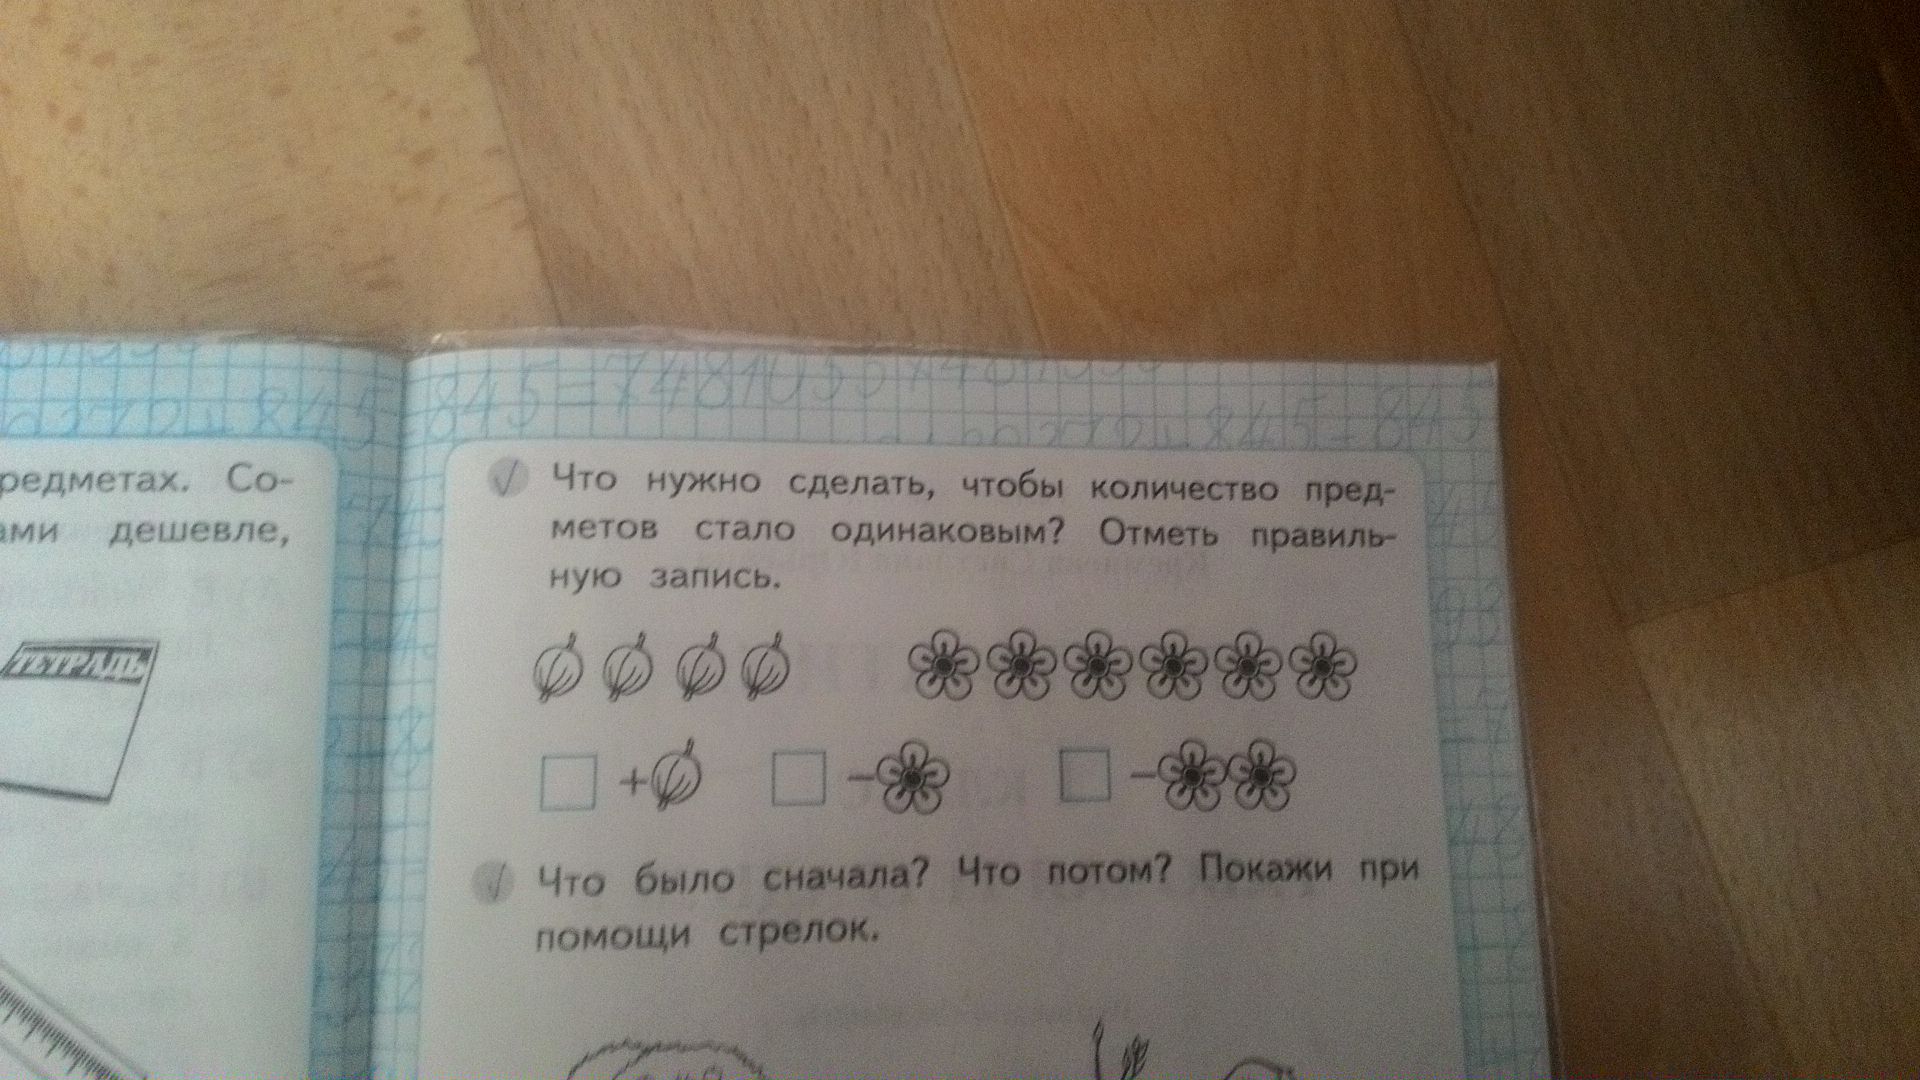 845=7481055740
+845+845
+845
редметах. Со-
ами дешевле,
ТЕТРАДЬ
Что нужно сделать, чтобы количество пред-
метов стало одинаковым? Отметь правиль-
ную запись.
+
−
−
Что было сначала? Что потом? Покажи при
помощи стрелок.